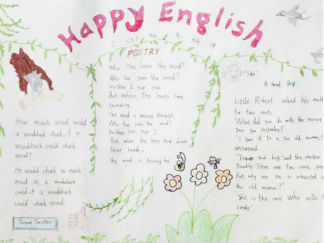 Happy English
POETRY
Who has seen the wind?
Neither I nor you
But when the leaves hang
trembling
The wind is passing through
Who has seen the wind?
Neither you nor I
But when the trees bow down
their heads
The wind is passing by
How much wood would
a woodchuck chuck if a
woodchuck could chuck
wood?
He would chuck as much
wood as a woodchuck
could if a woodchuck
could chuck wood.
Tongue Twister
A Good Boy
Little Robert asked his mother
for two cents.
"What did you do with the money
I gave you yesterday?"
"I gave it to a poor old woman,"
answered.
the mother
"Here are two cents more
But why are you so interested in
the old woman?"
"She is the one who sells the
candy."